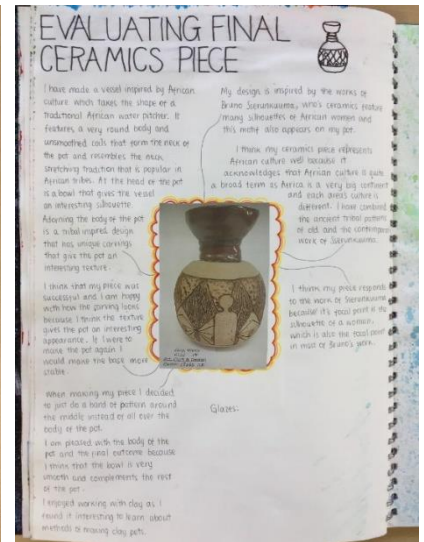 EVALUATING FINAL
CERAMICS PIECE
I have made a vessel inspired by African
culture which takes the shape of a
traditional African water pitcher. It
features a very round body and
unsmoothed coils that form the neck of
the pot and resembles the neck
stretching tradition that is popular in
African tribes. At the head of the pot
is a bowl that gives the vessel
an interesting silhouette.
Adorning the body of the pot
is a tribal inspired design
that has unique carvings
that give the pot an
interesting texture.
I think that my piece was
successful and I am happy
with how the carving looks
because I think the texture
gives the pot an interesting
appearance. If I were to
make the pot again I
would make the base more
stable.
When making my piece I decided
to just do a band of pattern around
the middle instead of all over the
body of the pot.
I am pleased with the body of the
pot and the final outcome because
I think that the bowl is very
smooth and complements the rest
of the pot.
I enjoyed working with clay as I
found it interesting to learn about
methods of making clay pots.
My design is inspired by the works of
Bruno Sserunkuuma, who's ceramics feature
many silhouettes of African women and
this motif also appears on my pot.
I think my ceramics piece represents
African culture well because it
acknowledges that African culture is quite
a broad term as Africa is a very big continent
and each area's culture is
different. I have combined
the ancient tribal patterns
of old and the contemporary
work of Sserunkuuma.
I think my piece responds
to the work of Sserunkuuma
because it's focal point is the
silhouette of a women,
which is also the focal point
in most of Bruno's work.
Glazes: